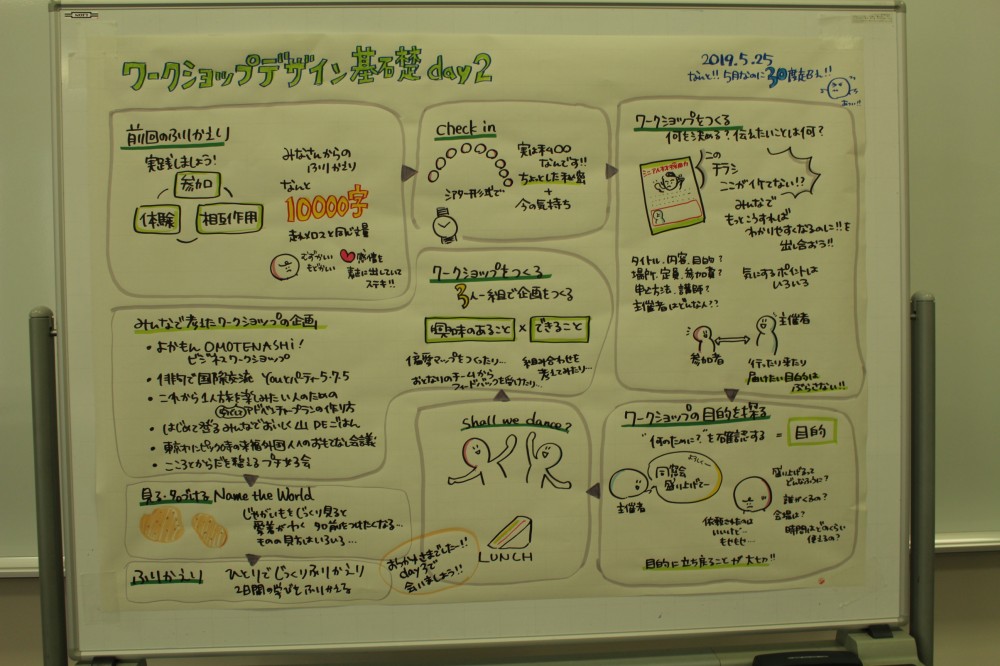 ワークショップデザイン基礎 day2
2019.5.25
なんと!! 5月なのに30度超え!!
前回のふりかえり
実践しましょう!
参加
体験
相互作用
みなさんからの
ふりかえり
なんと
10000字
走れメロスと同じ文量
でずかしい
もどかしい
感情を
素直に出していて
ステキ!!
check in
シアター形式で
実は手900
なんです!!
ちょっとした秘密
+
今の気持ち
ワークショップをつくる
何を決める?伝えたいことは何?
この
チラシ
ここがイケてない!?
みんなで
もっとこうすれば
わかりやすくなるのに!!を
出し合おう!!
タイトル.内容.目的?
場所.定員.参加費?
申込方法.講師?
主催者はどんな人??
気にするポイントは
いろいろ
参加者
主催者
行ったり来たり
届けたい目的は
ぶらさない!!
ワークショップの目的を探る
"何のために?"を確認する = 目的
主催者
同窓会
盛り上げて〜
よろしく〜
依頼されたのは
いいけど…
もやもや…
盛り上げるって
どんなふうに?
誰がくるの?
会場は?
時間はどのくらい
使えるの?
目的に立ち戻ることが大切!!
shall we dance?
LUNCH
ワークショップをつくる
3人一組で企画をつくる
興味のあること × できること
偏愛マップをつくったり…
組み合わせを
考えてみたり…
おとなりのチームから
フィードバックを受けたり…
みんなで考えたワークショップの企画
・よかもん OMOTENASHI!
ビジネスワークショップ
・俳句で国際交流 Youとパーティ5・7・5
・これから1人旅を楽しみたい人のための
アドベンチャープランの作り方
・はじめて登る みんなでおいしく山DEごはん
・東京オリンピックの時の来福外国人へのおもてなし会議
・こころとからだを整えるプチ女子会
見る・名づける Name the World
じゃがいもをじっくり見ると
愛着がわく 名前をつけたくなる…
ものの見方はいろいろ…
ふりかえり
ひとりでじっくりふりかえり
2日間の学びをふりかえる
おつかれさまでした〜!!
day3で
会いましょう!!